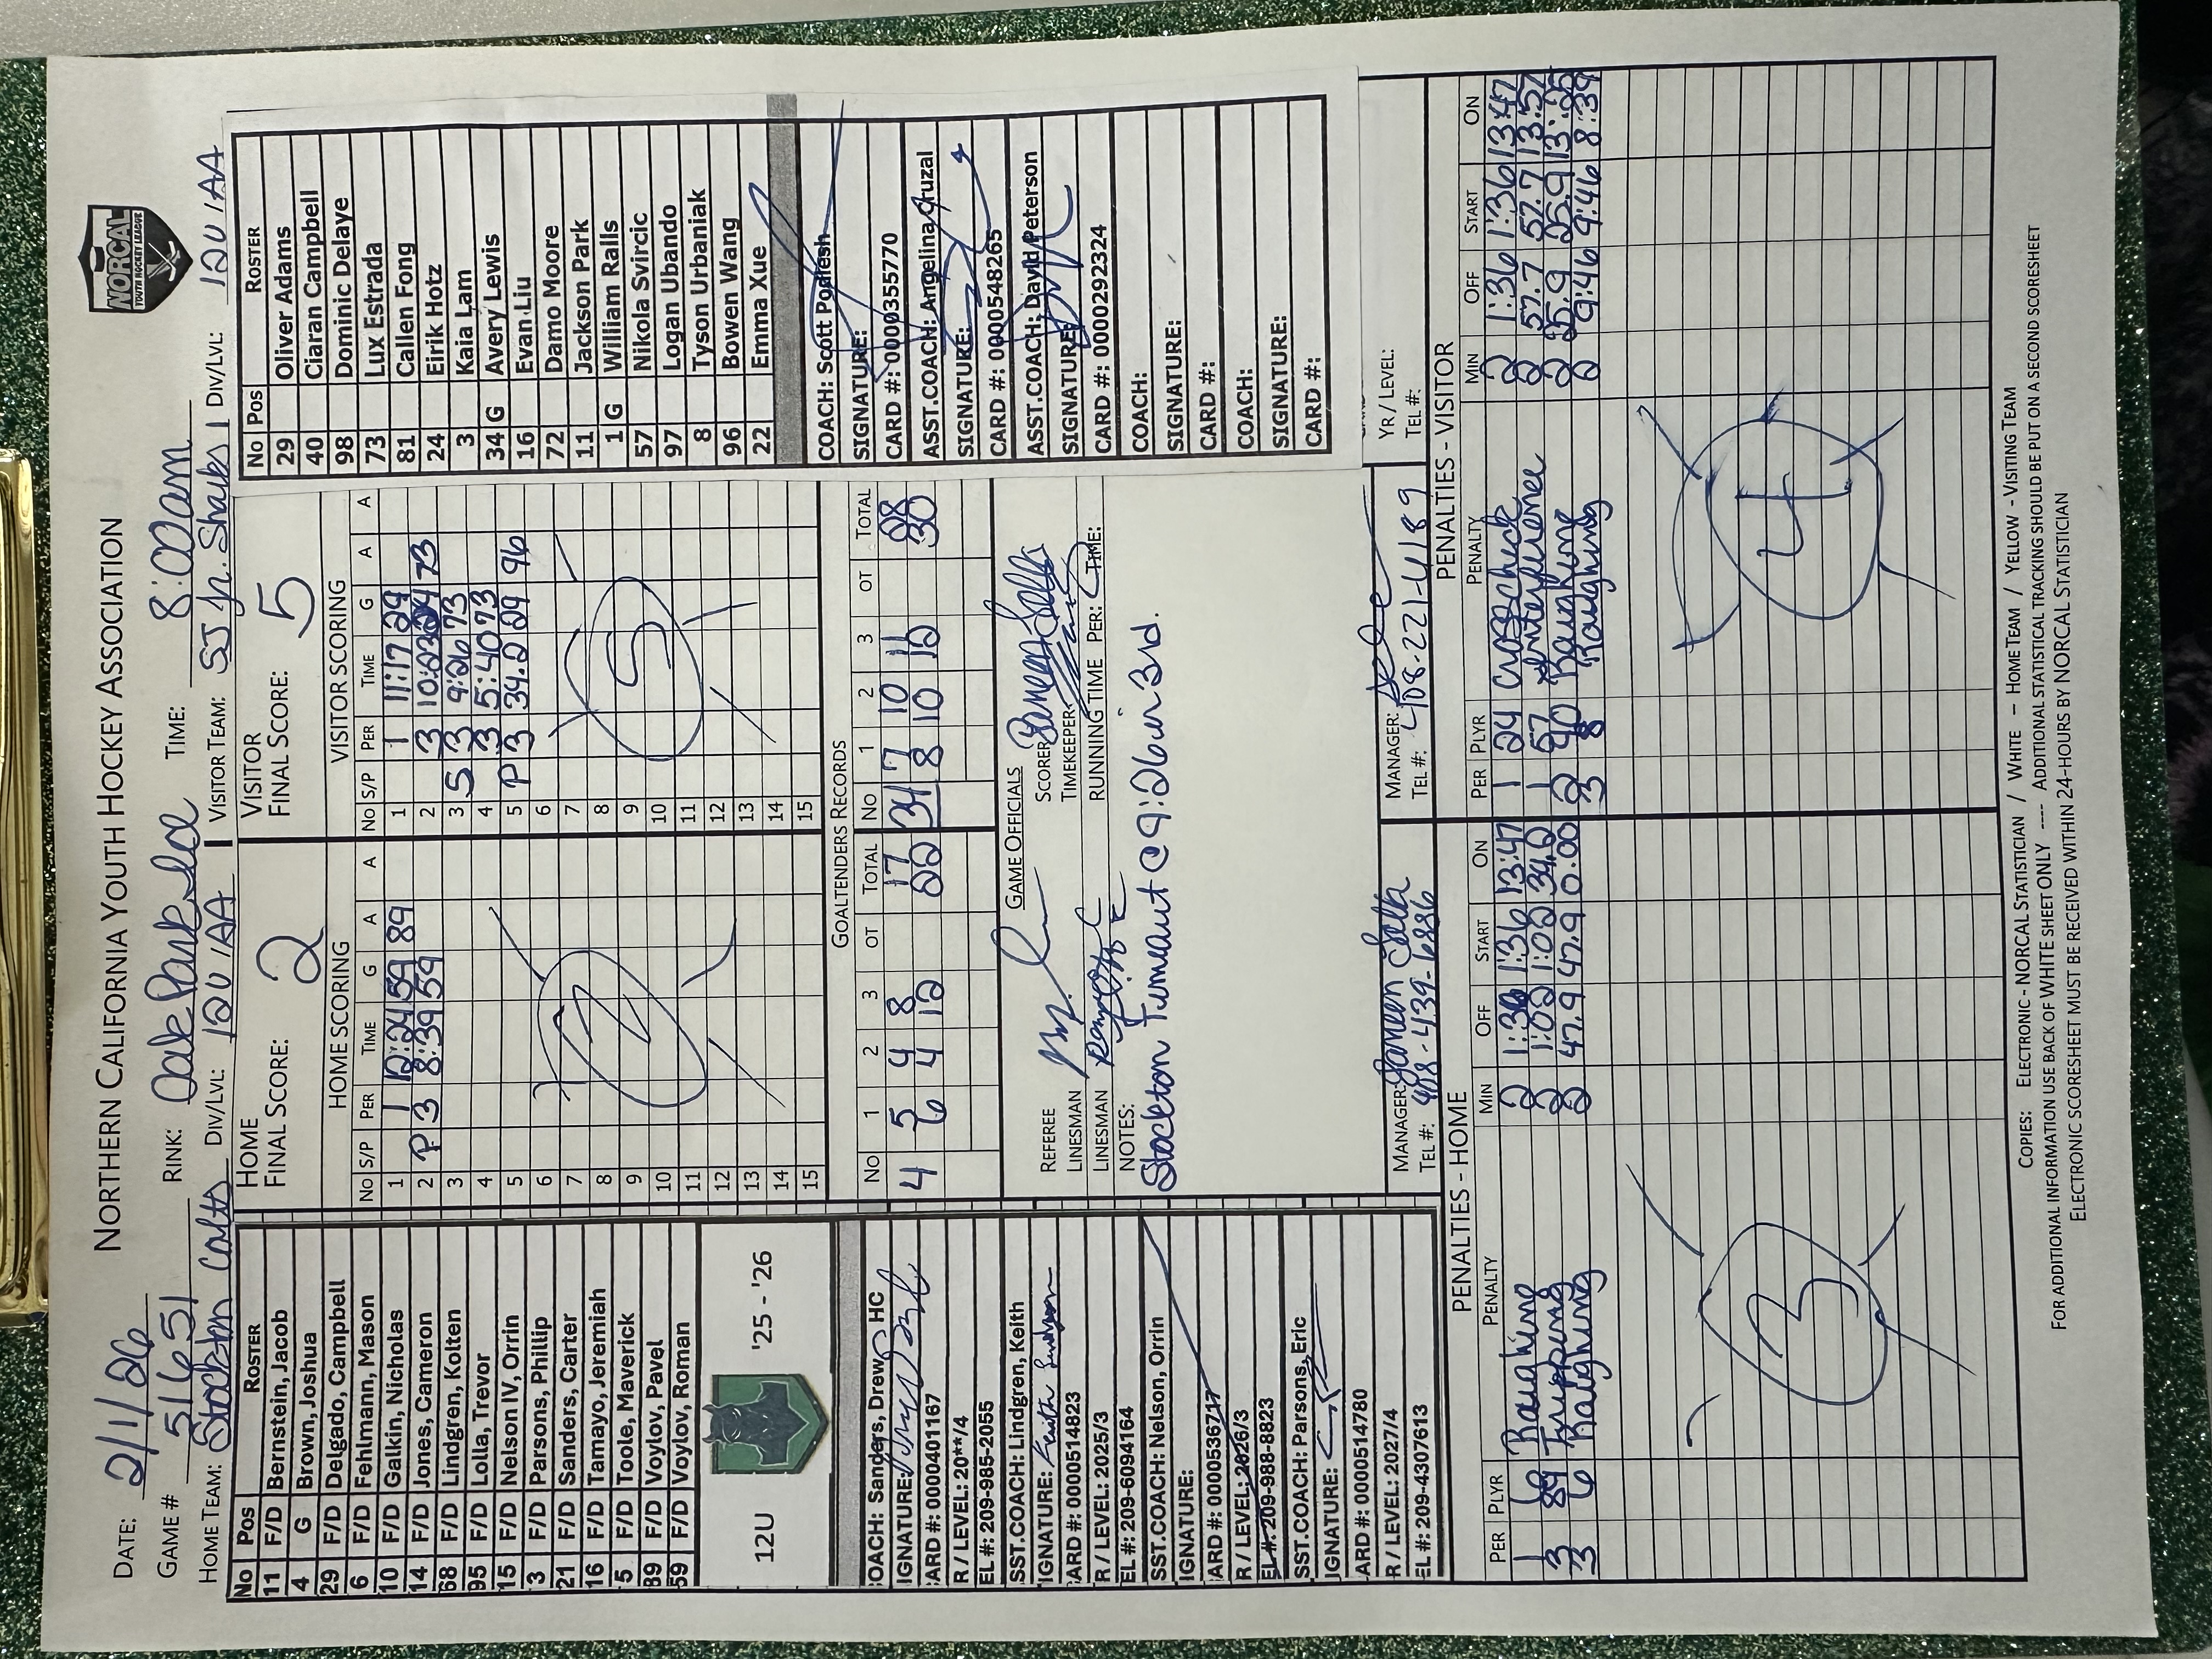 NORTHERN CALIFORNIA YOUTH HOCKEY ASSOCIATION
NORCAL
YOUTH HOCKEY LEAGUE
DATE: 2/1/26 RINK: Oak Park Ice TIME: 8:00am
GAME # 5165
HOME TEAM: Stockton Colts DIV/LVL: 12U 1AA VISITOR TEAM: SJ Jr. Sharks 1 DIV/LVL: 12U 1AA
No Pos ROSTER
11 F/D Bernstein, Jacob
4 G Brown, Joshua
29 F/D Delgado, Campbell
6 F/D Fehlmann, Mason
10 F/D Galkin, Nicholas
14 F/D Jones, Cameron
68 F/D Lindgren, Kolten
95 F/D Lolla, Trevor
15 F/D Nelson IV, Orrin
3 F/D Parsons, Phillip
21 F/D Sanders, Carter
16 F/D Tamayo, Jeremiah
5 F/D Toole, Maverick
89 F/D Voylov, Pavel
59 F/D Voylov, Roman
12U '25 - '26
OACH: Sanders, Drew HC
IGNATURE:
ARD #: 0000401167
R / LEVEL: 20**/4
EL #: 209-985-2055
SST.COACH: Lindgren, Keith
IGNATURE: Keith Lindgren
ARD #: 0000514823
R / LEVEL: 2025/3
EL #: 209-6094164
SST.COACH: Nelson, Orrin
IGNATURE:
ARD #: 0000536717
R / LEVEL: 2026/3
EL #: 209-988-8823
SST.COACH: Parsons, Eric
IGNATURE:
ARD #: 0000514780
R / LEVEL: 2027/4
EL #: 209-4307613
HOME
FINAL SCORE: 2
HOME SCORING
No S/P PER TIME G A A
1 1 12:24 59 89
2 P 3 8:39 59
3
4
5
6
7
8
9
10
11
12
13
14
15
2
VISITOR
FINAL SCORE: 5
VISITOR SCORING
No S/P PER TIME G A A
1 1 11:17 29
2 3 10:23 24 73
3 S 3 9:26 73
4 3 5:40 73
5 P 3 34.2 29 96
6
7
8
9
10
11
12
13
14
15
5
GOALTENDERS RECORDS
No 1 2 3 OT TOTAL No 1 2 3 OT TOTAL
4 5 4 8 17 34 7 10 11 28
6 4 12 22 8 10 12 30
GAME OFFICIALS
REFEREE SCORER:
LINESMAN TIMEKEEPER:
LINESMAN RUNNING TIME PER: TIME:
NOTES:
Stockton Timeout @ 9:26 in 3rd.
MANAGER: MANAGER:
TEL #: 408-439-6886 TEL #: 408-221-4189
YR / LEVEL:
TEL #:
No Pos ROSTER
29 Oliver Adams
40 Ciaran Campbell
98 Dominic Delaye
73 Lux Estrada
81 Callen Fong
24 Eirik Hotz
3 Kaia Lam
34 G Avery Lewis
16 Evan Liu
72 Damo Moore
11 Jackson Park
1 G William Ralls
57 Nikola Svircic
97 Logan Ubando
8 Tyson Urbaniak
96 Bowen Wang
22 Emma Xue
COACH: Scott
SIGNATURE:
CARD #: 0000355770
ASST.COACH: Angelina Cruzal
SIGNATURE:
CARD #: 0000548265
ASST.COACH: David Peterson
SIGNATURE:
CARD #: 0000292324
COACH:
SIGNATURE:
CARD #:
COACH:
SIGNATURE:
CARD #:
PENALTIES - HOME
PER PLYR PENALTY MIN OFF START ON
1 6 Roughing 2 1:36 1:36 13:47
3 89 Tripping 2 1:02 1:02 34.0
3 6 Roughing 2 47.9 47.9 0:00
3
PENALTIES - VISITOR
PER PLYR PENALTY MIN OFF START ON
1 24 Crosscheck 2 1:36 1:36 13:47
1 57 Interference 2 57.7 57.7 13:57
2 40 Roughing 2 25.9 25.9 13:25
3 8 Roughing 2 9:46 9:46 8:39
4
COPIES: ELECTRONIC - NORCAL STATISTICIAN / WHITE – HOME TEAM / YELLOW - VISITING TEAM
FOR ADDITIONAL INFORMATION USE BACK OF WHITE SHEET ONLY ---- ADDITIONAL STATISTICAL TRACKING SHOULD BE PUT ON A SECOND SCORESHEET
ELECTRONIC SCORESHEET MUST BE RECEIVED WITHIN 24-HOURS BY NORCAL STATISTICIAN